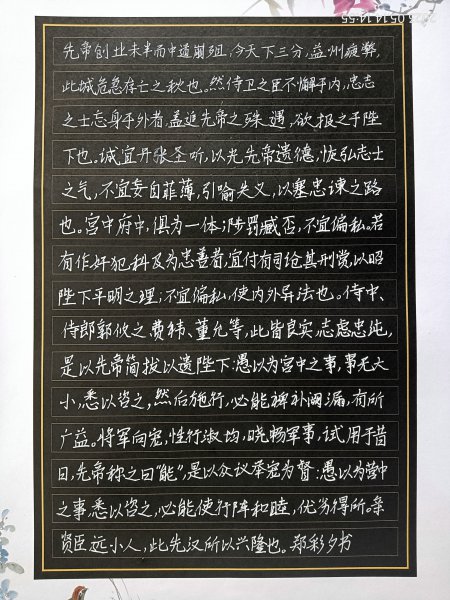 先帝创业未半而中道崩殂,今天下三分,益州疲弊,
此城危急存亡之秋也。然侍卫之臣不懈于内,忠志
之士忘身于外者,盖追先帝之殊遇,欲报之于陛
下也。诚宜开张圣听,以光先帝遗德,恢弘志士
之气,不宜妄自菲薄,引喻失义,以塞忠谏之路
也。宫中府中,俱为一体;陟罚臧否,不宜偏私。若
有作奸犯科及为忠善者,宜付有司论其刑赏,以昭
陛下平明之理;不宜偏私,使内外异法也。侍中、
侍郎郭攸之、费祎、董允等,此皆良实,志虑忠纯,
是以先帝简拔以遗陛下:愚以为宫中之事,事无大
小,悉以咨之,然后施行,必能裨补阙漏,有所
广益。将军向宠,性行淑均,晓畅军事,试用于昔
日,先帝称之曰“能”,是以众议举宠为督:愚以为营中
之事,悉以咨之,必能使行阵和睦,优劣得所。亲
贤臣远小人,此先汉所以兴隆也。郑彩夕书